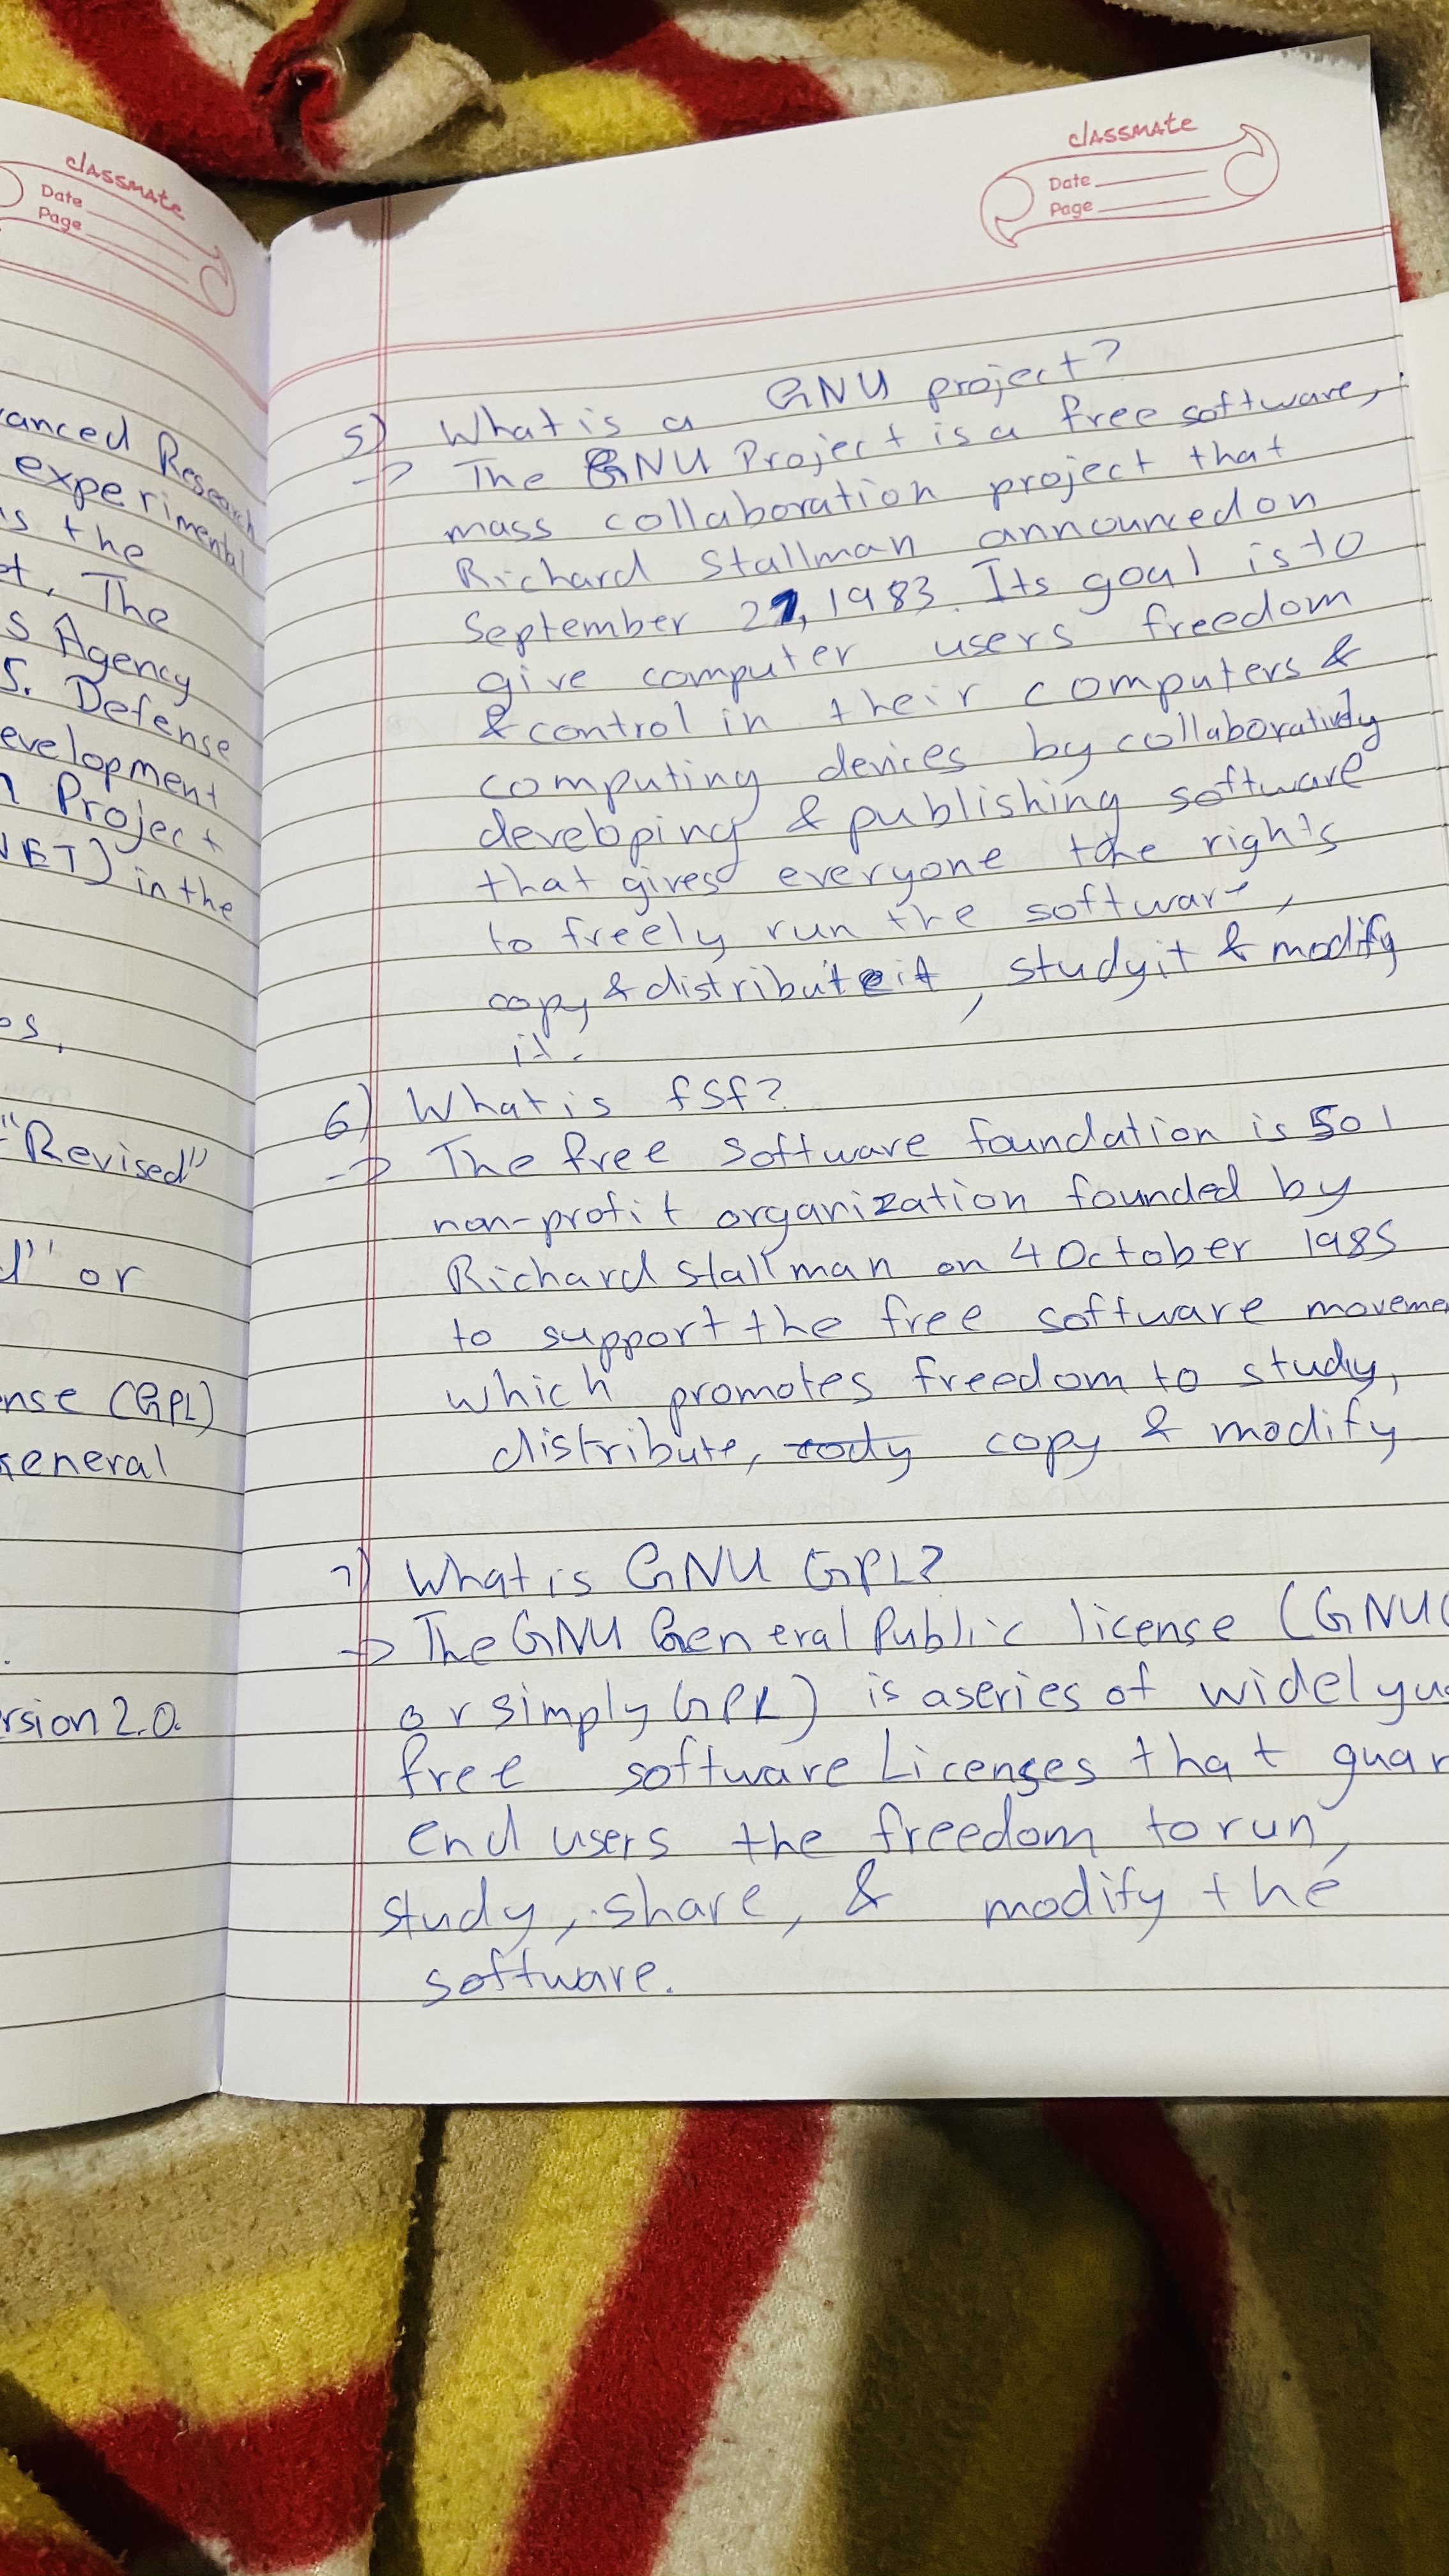 classmate
Date
Page
anced Research
experimental
s the
t. The
s Agency
S. Defense
evelopment
Project
ET) in the
os,
"Revised"
d" or
nse (GPL)
eneral
rsion 2.0.
classmate
Date
Page
5) What is a GNU project?
→ The GNU Project is a free software,
mass collaboration project that
Richard Stallman announced on
September 27, 1983. Its goal is to
give computer users freedom
& control in their computers &
computing devices by collaboratively
developing & publishing software
that gives everyone the rights
to freely run the software,
copy & distribute it, study it & modify
it.
6) What is fsf?
→ The free software foundation is 501
non-profit organization founded by
Richard Stallman on 4 October 1985
to support the free software moveme
which promotes freedom to study,
distribute, copy & modify
7) What is GNU GPL?
→ The GNU General Public license (GNU
or simply GPL) is a series of widely us
free software Licenses that guar
end users the freedom to run,
study, share, & modify the
software.